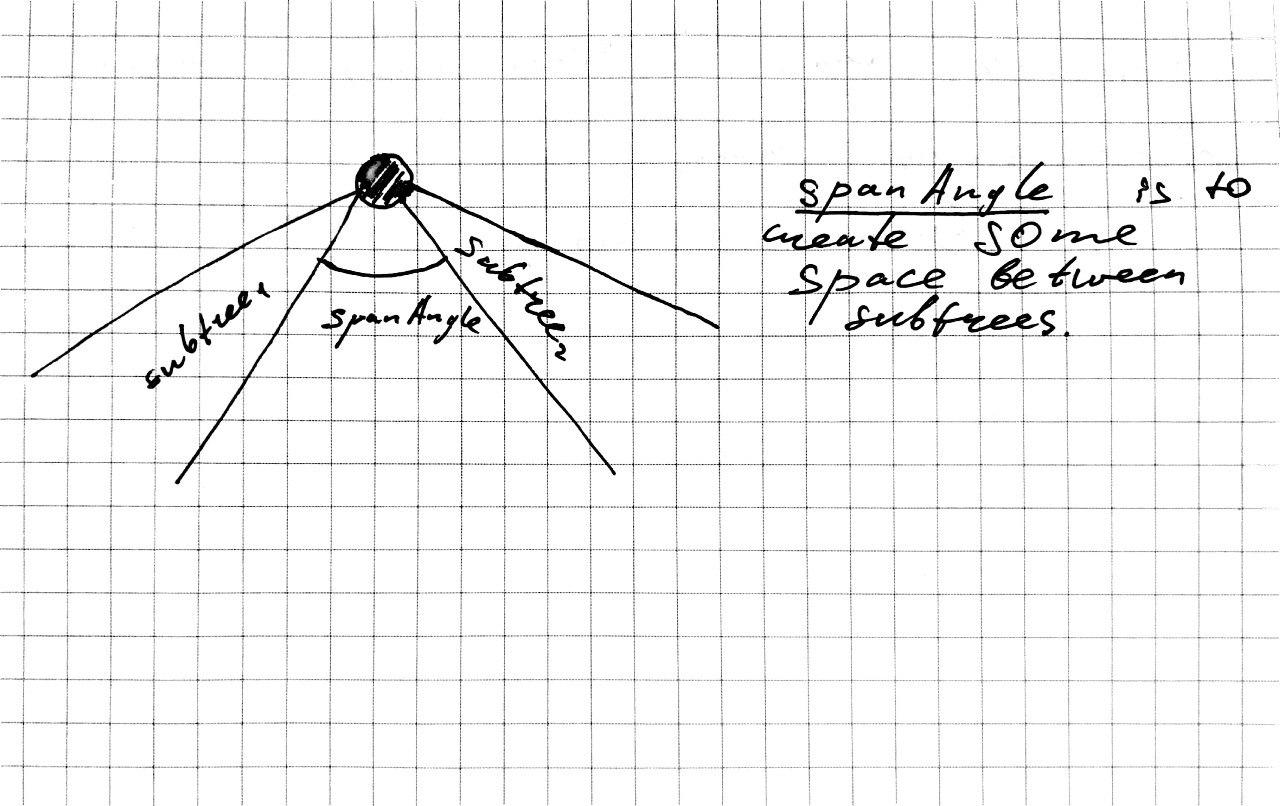 subtree1
spanAngle
subtree2
spanAngle is to
create some
space between
subtrees.